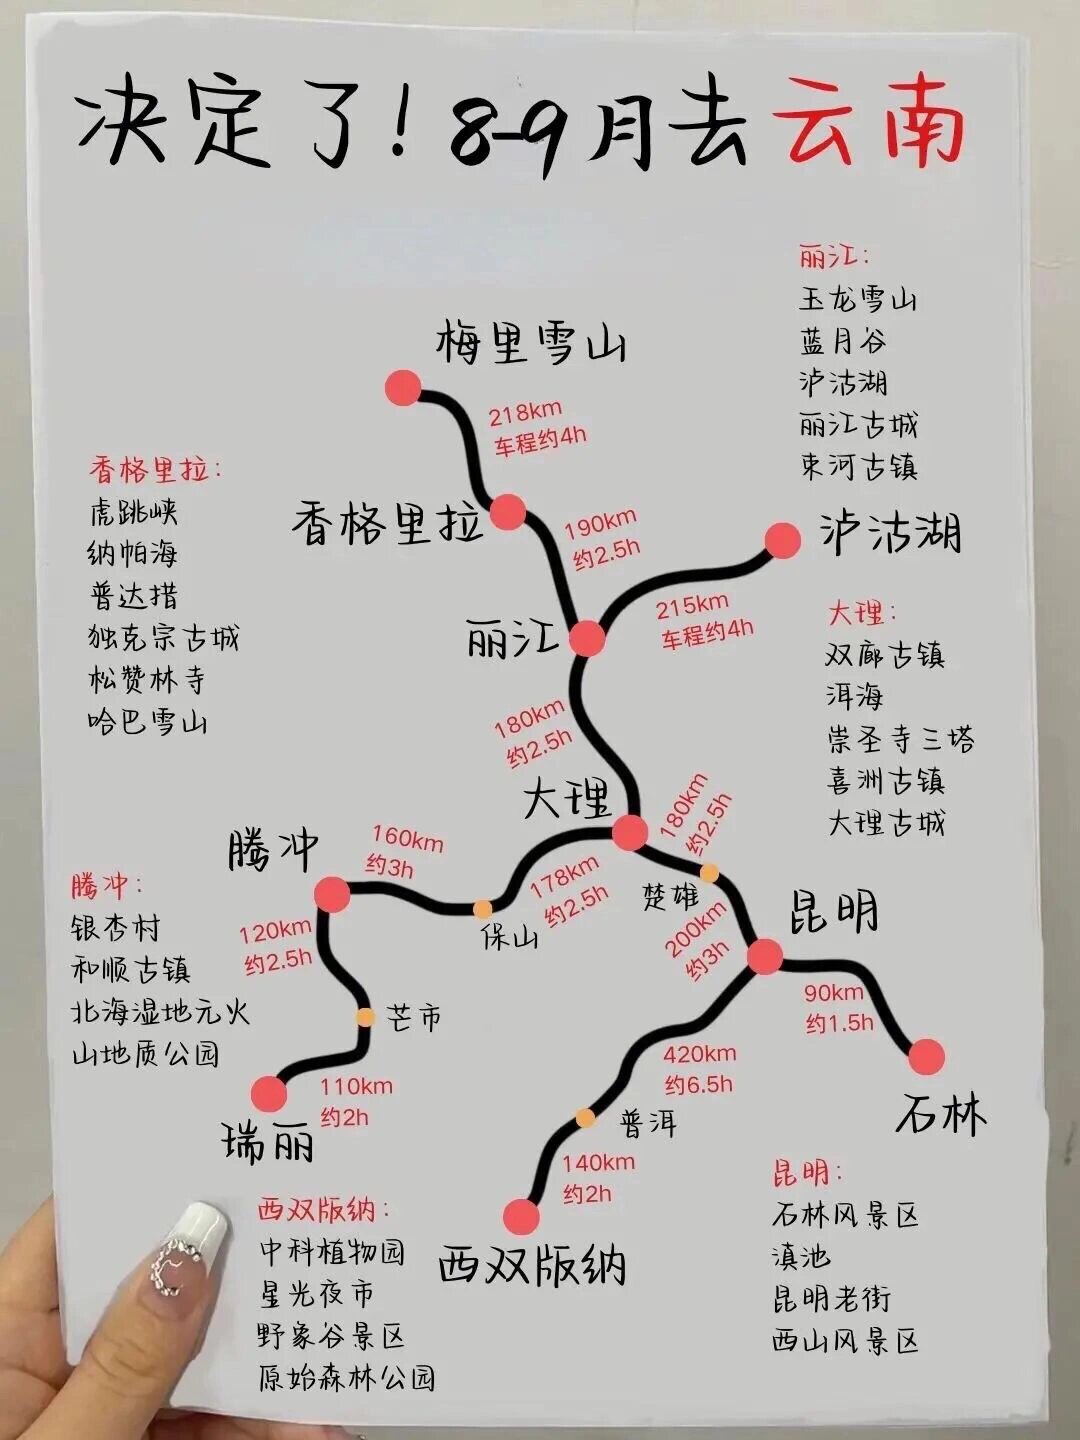 决定了！8-9月去云南
丽江：
玉龙雪山
蓝月谷
泸沽湖
丽江古城
束河古镇
梅里雪山
218km
车程约4h
香格里拉：
虎跳峡
纳帕海
普达措
独克宗古城
松赞林寺
哈巴雪山
香格里拉
190km
约2.5h
泸沽湖
215km
车程约4h
丽江
大理：
双廊古镇
洱海
崇圣寺三塔
喜洲古镇
大理古城
180km
约2.5h
大理
180km
约2.5h
腾冲
160km
约3h
178km
约2.5h
保山
楚雄
200km
约3h
昆明
腾冲：
银杏村
和顺古镇
北海湿地元火
山地质公园
120km
约2.5h
芒市
110km
约2h
瑞丽
90km
约1.5h
石林
420km
约6.5h
普洱
140km
约2h
西双版纳
西双版纳：
中科植物园
星光夜市
野象谷景区
原始森林公园
昆明：
石林风景区
滇池
昆明老街
西山风景区